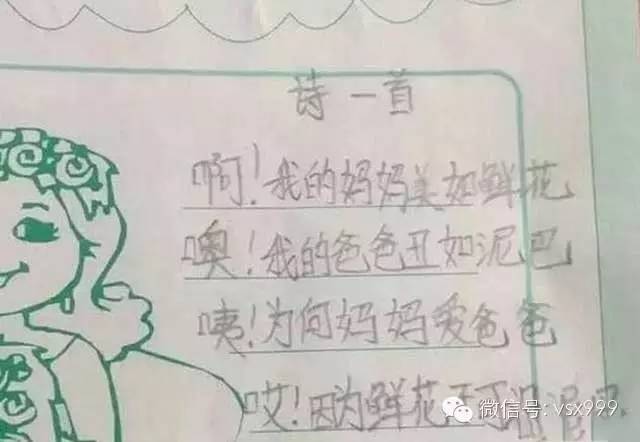 诗一首
啊!我的妈妈美如鲜花
噢!我的爸爸丑如泥巴
咦!为何妈妈爱爸爸
哎!因为鲜花不可
微信号: vsx999